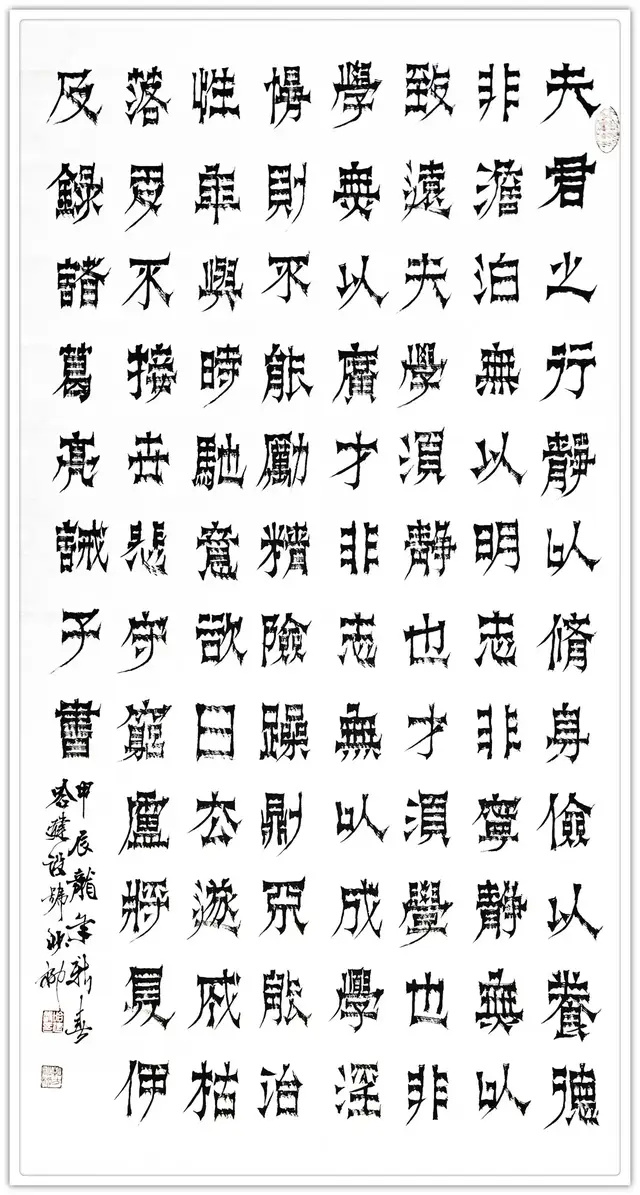 夫君之行靜以脩身儉以養德
非澹泊無以明志非寧靜無以
致遠夫學須靜也才須學也非
學無以廣才非志無以成學淫
慢則不能勵精險躁則不能治
性年與時馳意欲日去遂成枯
落多不接世悲守窮廬將復何
及錄諸葛亮誡子書
甲辰龍年新春
建設號